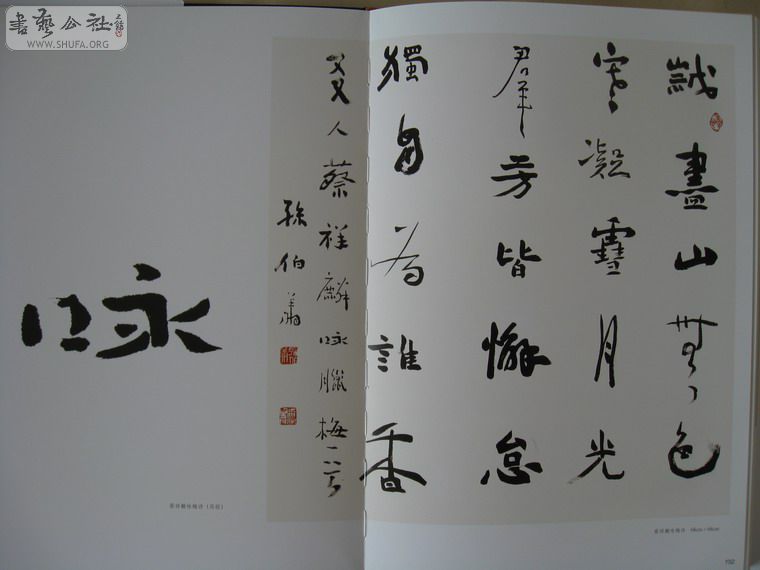 書藝公社
WWW.SHUFA.ORG
歲盡山無色
寒凝雪月光
羣芳皆懈怠
獨自為誰香
友人蔡祥麟咏臘梅一首
孫伯翔
咏
蔡祥麟咏梅诗（局部）
蔡祥麟咏梅诗
152